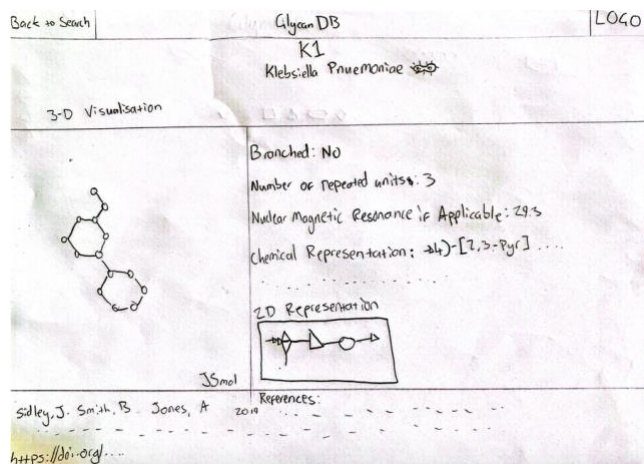 Back to Search
Glycan DB
LOGO
K1
Klebsiella Pnuemoniae
3-D Visualisation
Branched: NO
Number of repeated units: 3
Nuclear Magnetic Resonance if Applicable: 293
Chemical Representation: →4)-[2,3-Pyr] ....
2D Representation
JSmol
References:
Sidley, J. Smith, B. Jones, A 2019
https://doi.org/....